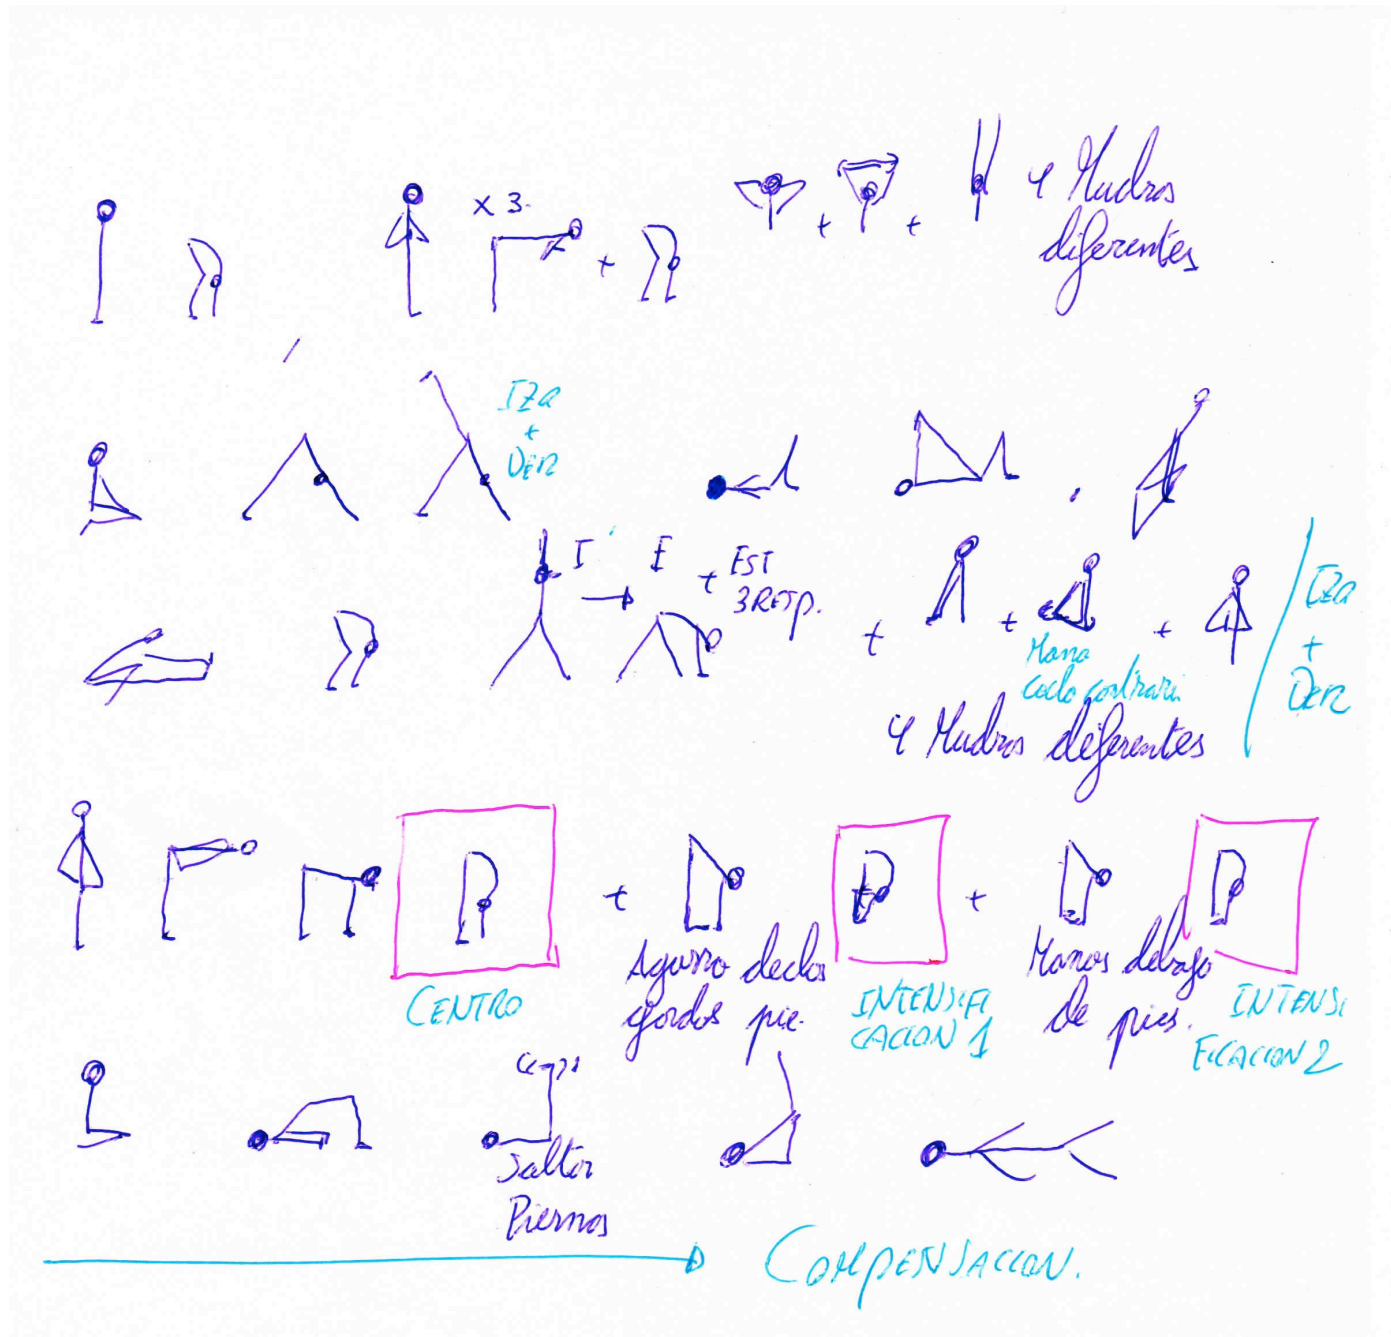 x 3.
+
+
+
4 Mudras
diferentes
IZQ
+
DER
I
E
+
EST
3 RESP.
+
+
+
Mano
codo contrari.
IZQ
+
DER
4 Mudras diferentes
+
+
CENTRO
Agarro dedos
gordos pie.
INTENSIFI
CACION 1
Manos debajo
de pies.
INTENSI
FICACION 2
Soltar
Piernas
COMPENSACION.